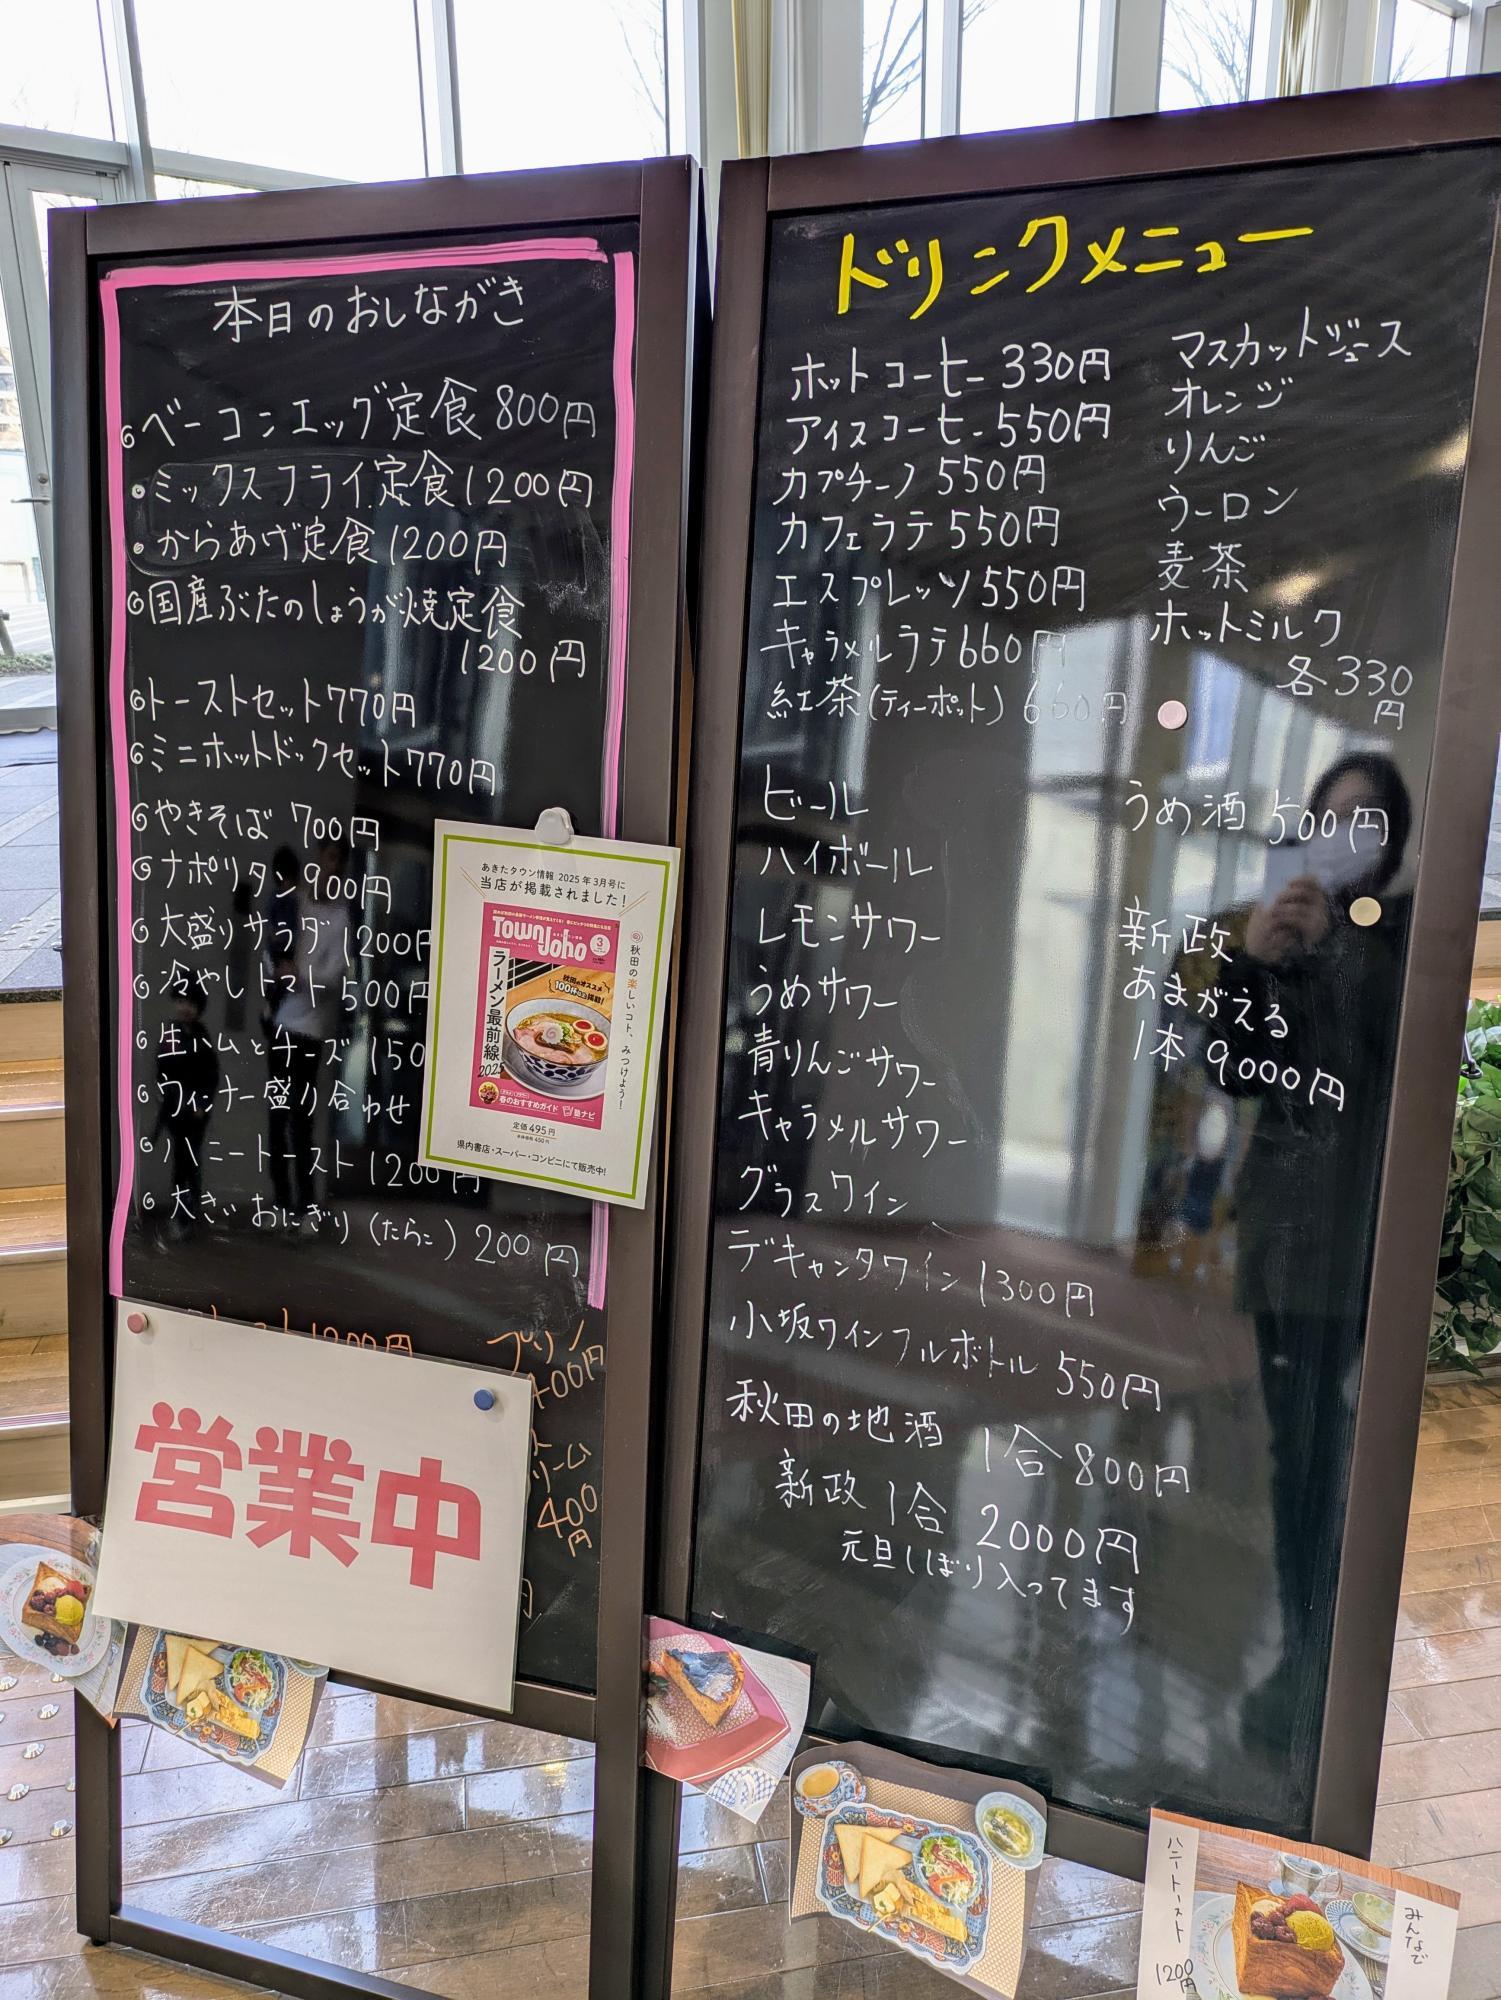 本日のおしながき
ベーコンエッグ定食 800円
ミックスフライ定食 1200円
からあげ定食 1200円
国産ぶたのしょうが焼定食
1200円
トーストセット 770円
ミニホットドックセット 770円
やきそば 700円
ナポリタン 900円
大盛りサラダ 1200円
冷やしトマト 500円
生ハムとチーズ 150
ウィンナー盛り合わせ
ハニートースト 1200円
大きいおにぎり(たらこ) 200円
1200円
プリン
400円
リーム
400
円
営業中
あきたタウン情報 2025年3月号に
当店が掲載されました!
Town Joho
3
ラーメン最前線
2025
秋田のオススメ
100杯
春のおすすめガイド
塾ナビ
秋田の楽しいコト、みつけよう!
定価495円
本体価格450円
県内書店・スーパー・コンビニにて販売中!
ドリンクメニュー
ホットコーヒー 330円
アイスコーヒー 550円
カプチーノ 550円
カフェラテ 550円
エスプレッソ 550円
キャラメルラテ 660円
紅茶(ティーポット) 660円
マスカットジュース
オレンジ
りんご
ウーロン
麦茶
ホットミルク
各330
円
ビール
ハイボール
レモンサワー
うめサワー
青りんごサワー
キャラメルサワー
グラスワイン
デキャンタワイン 1300円
小坂ワインフルボトル 550円
秋田の地酒 1合800円
新政 1合 2000円
元旦しぼり入ってます
うめ酒 500円
新政
あまがえる
1本 9000円
ハニートースト
1200円
みんなで